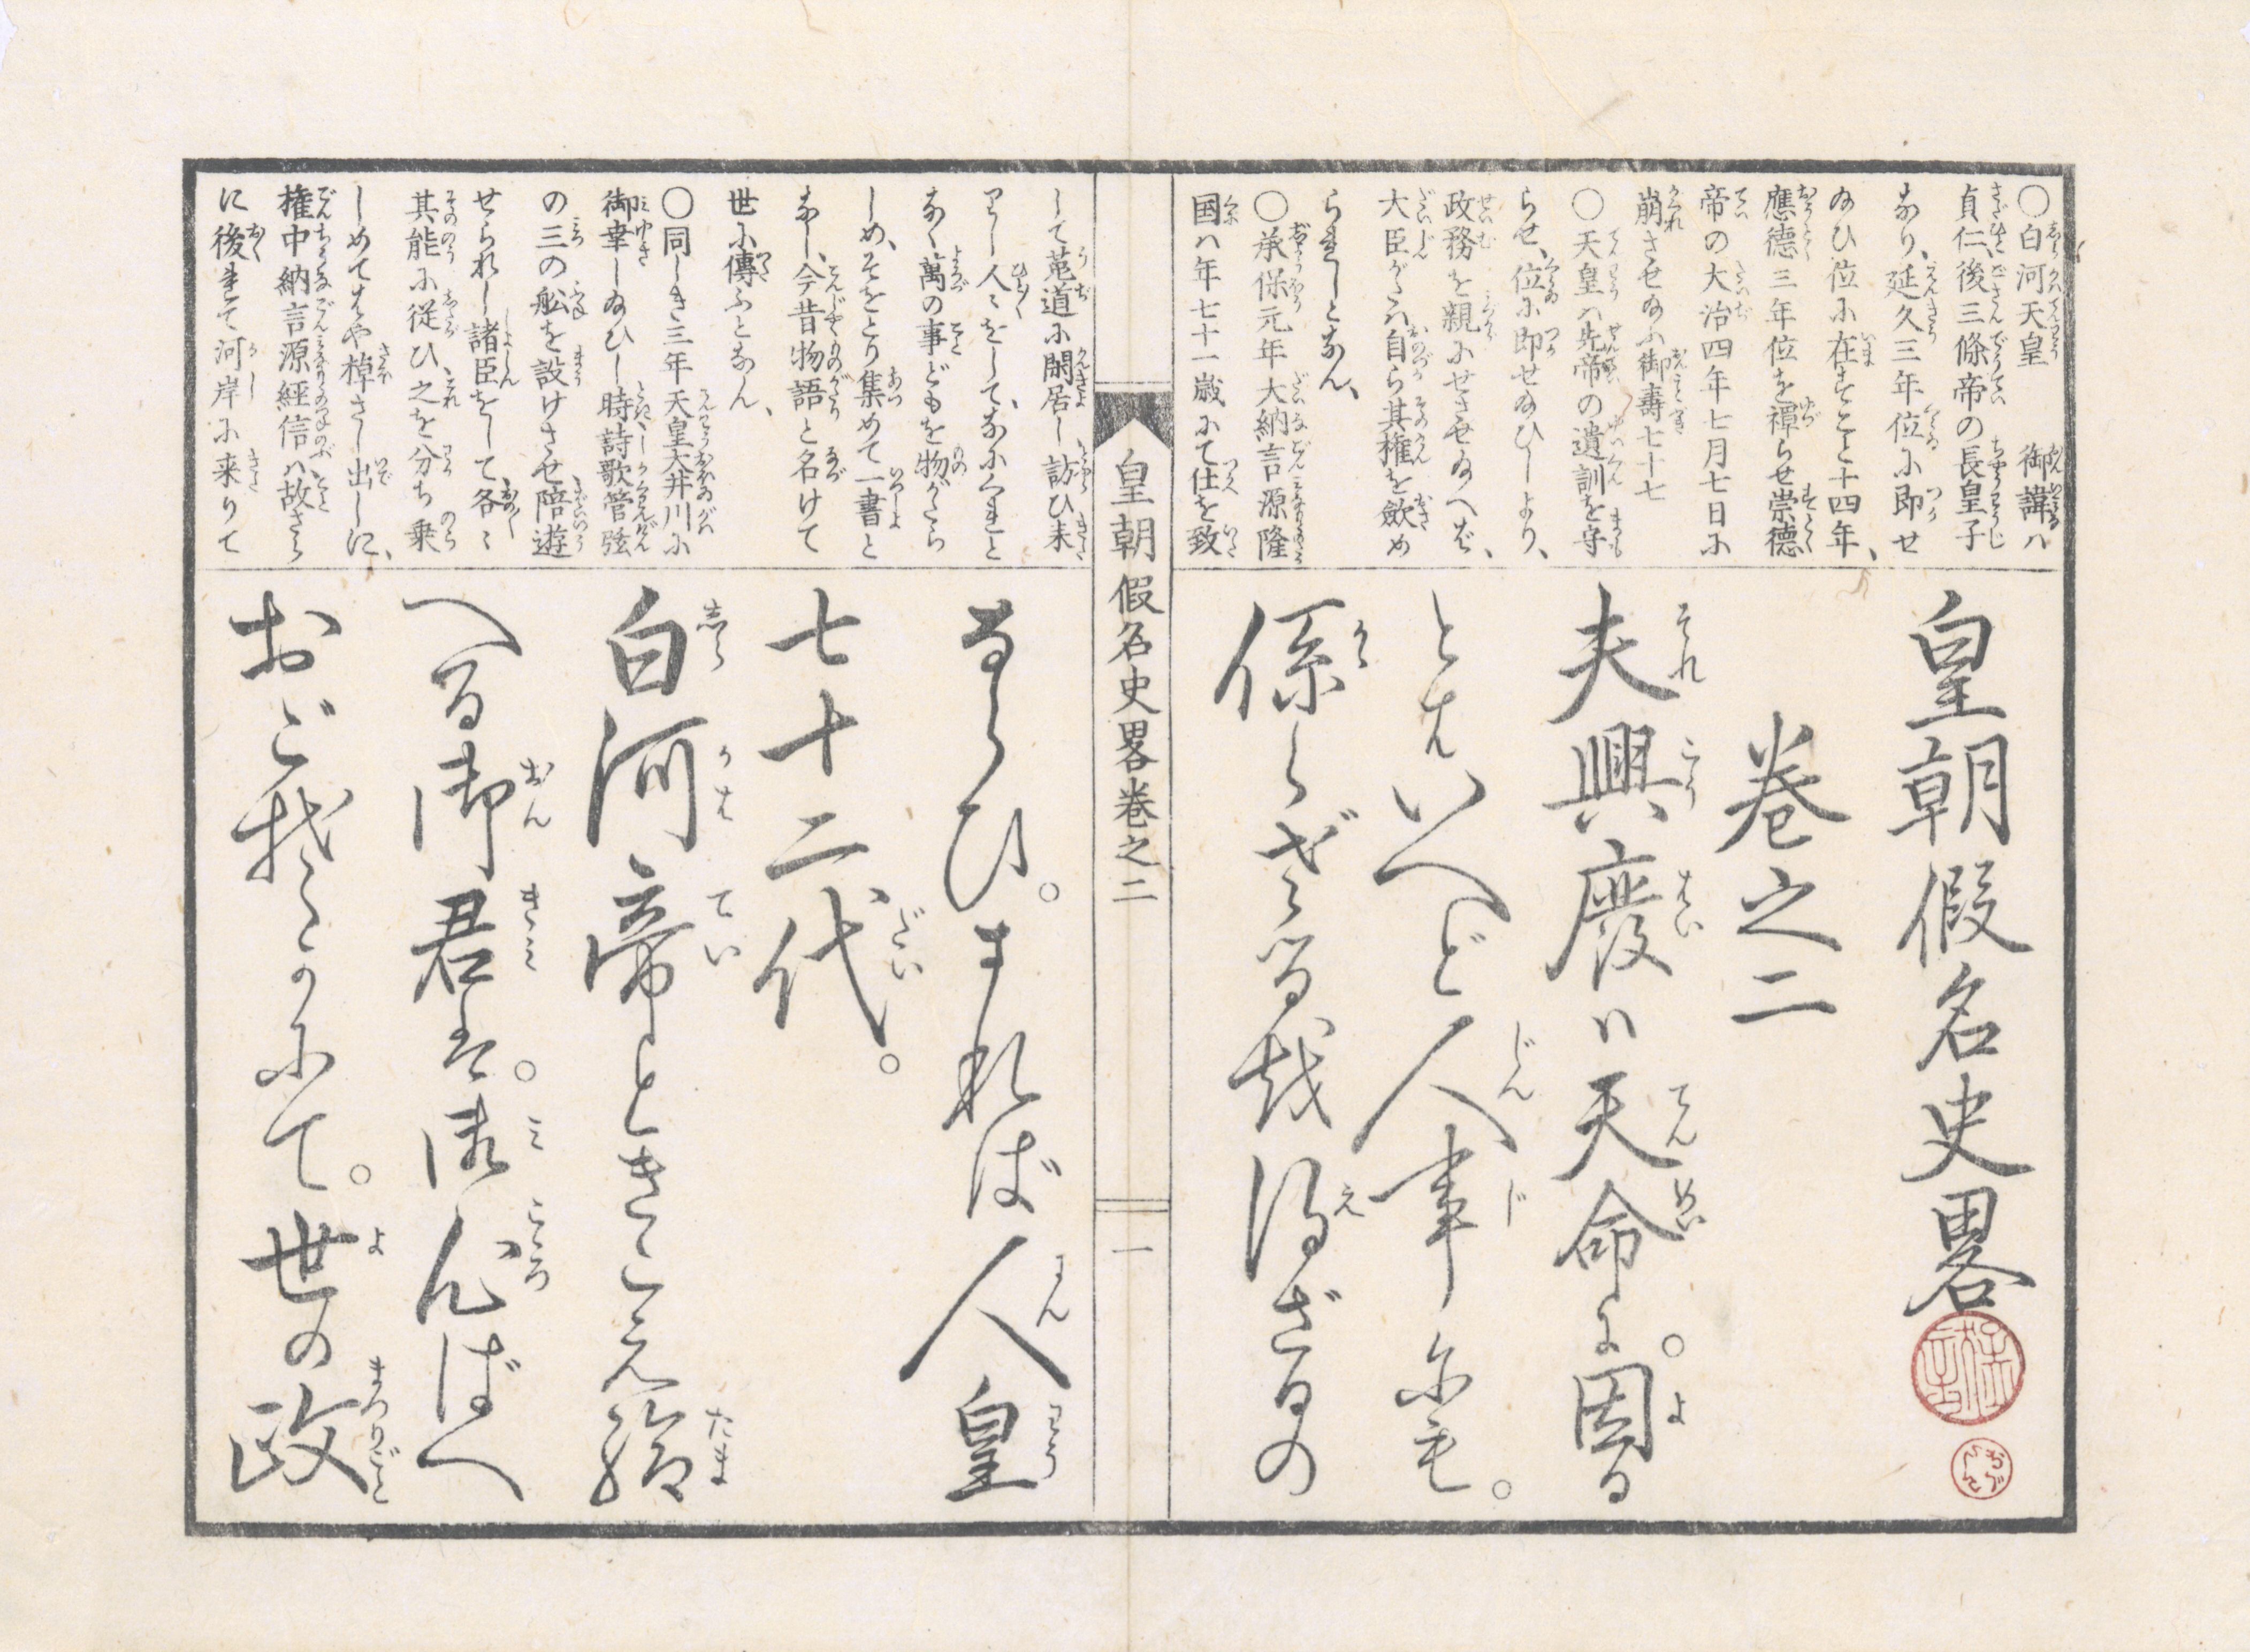 皇朝假名史畧
巻之二
夫興廢ハ天命に。因る
とはいへど人事にも。
係らざる越得ざるの
ならひ。まれば人皇
七十二代。
白河帝ときこえ給
へる御君は。御心ばへ
おごそかにて。世の政
〇白河天皇 御諱ハ
貞仁、後三條帝の長皇子
なり、延久三年位に即せ
給ひ位に在すこと十四年、
應德三年位を禪らせ崇德
帝の大治四年七月七日に
崩させ給ふ御壽七十七
〇天皇ハ先帝の遺訓を守
らせ、位に即せ給ひしより、
政務を親にせさせ給へば、
大臣がたハ自ら其權を歛め
られしとなん、
〇承保元年大納言源隆
国ハ年七十一歳にて仕を致
して菟道に閑居し訪ひ来
りし人〻をして、なにくれと
なく萬の事どもを物がたら
しめ、そをとり集めて一書と
なし、今昔物語と名けて
世に傳ふとなん、
〇同しき三年天皇大井川に
御幸し給ひし時詩歌管弦
の三の舩を設けさせ陪遊
せられし諸臣をして各〻
其能に従ひ之を分ち乗
しめてはや棹さし出しに、
権中納言源經信ハ故さら
に後れて河岸に来りて
皇朝假名史畧巻之二
一